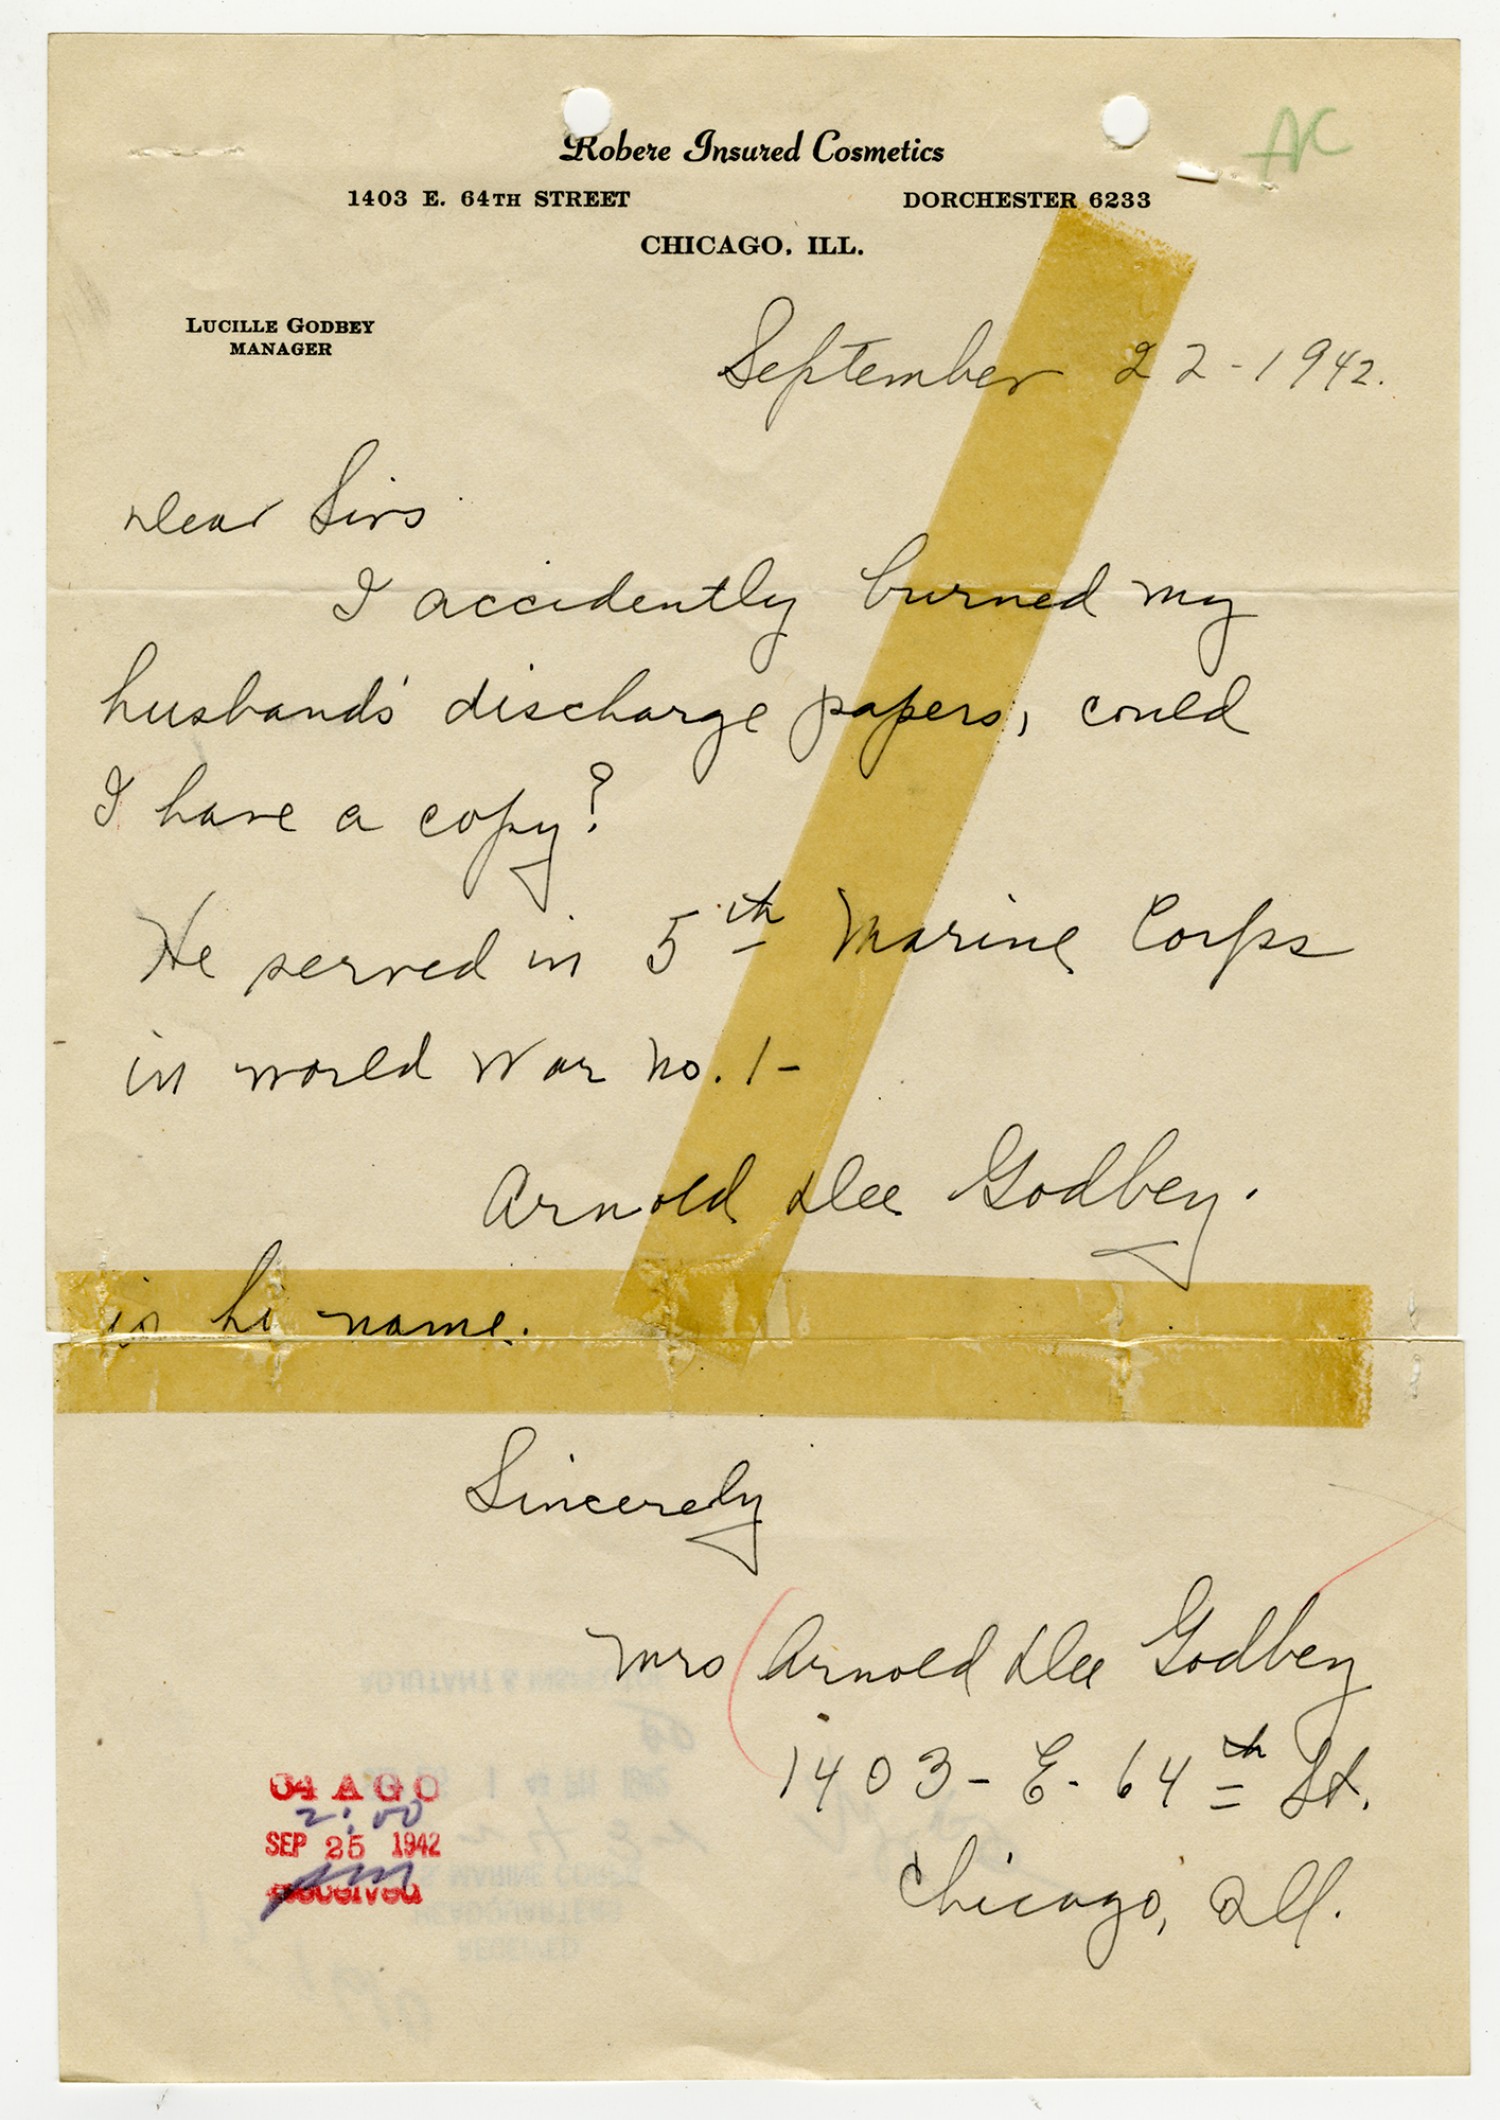 AC
Robere Insured Cosmetics
1403 E. 64TH STREET DORCHESTER 6233
CHICAGO, ILL.
LUCILLE GODBEY
MANAGER
September 22-1942.
Dear Sirs
I accidently burned my
husband's discharge papers, could
I have a copy?
He served in 5th Marine Corps
in world War No. 1-
Arnold Dee Godbey.
is hi name.
Sincerely
Mrs Arnold Dee Godbey
1403-E-64th St.
Chicago, Ill.
04 AGO
2:00
SEP 25 1942
Received